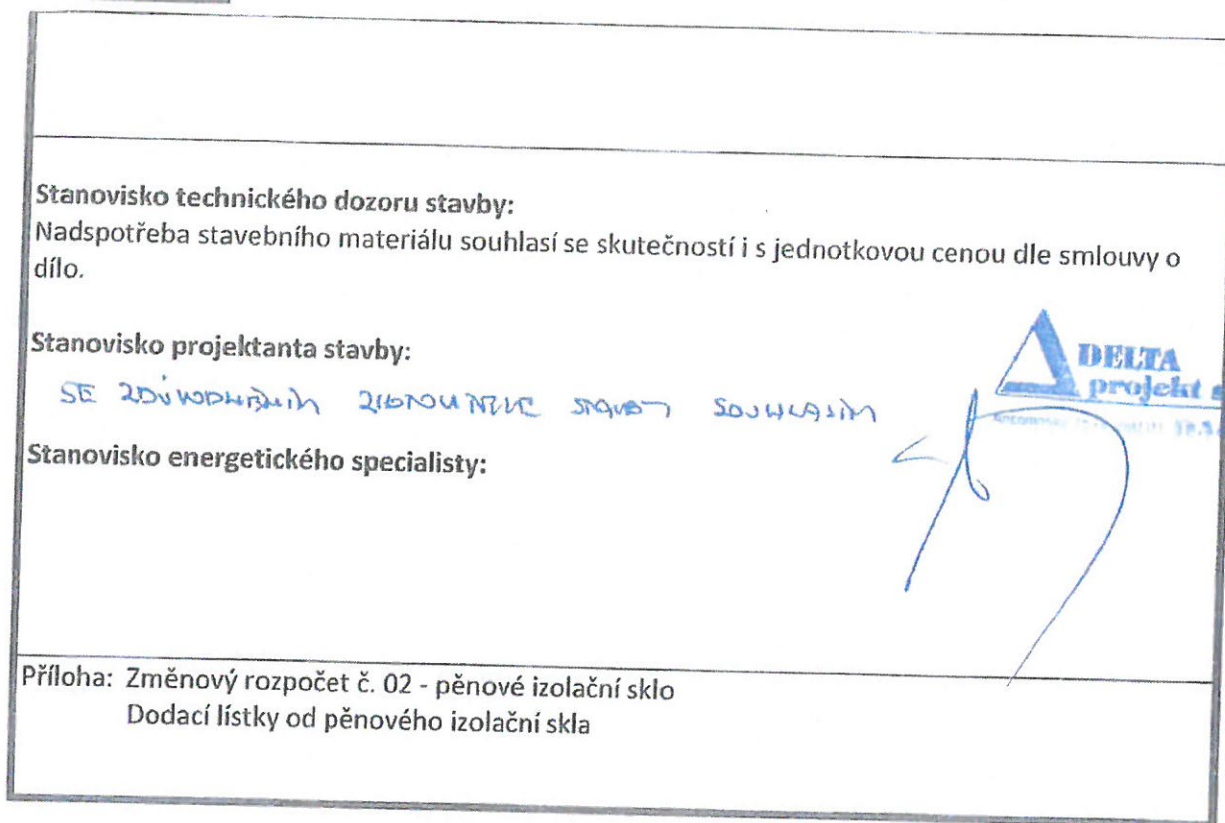 Stanovisko technického dozoru stavby:
Nadspotřeba stavebního materiálu souhlasí se skutečností i s jednotkovou cenou dle smlouvy o
dílo.
Stanovisko projektanta stavby:
DELTA
projekt s
SE ZDŮVODNĚNÍM SOUHLASÍM
Stanovisko energetického specialisty:
Příloha: Změnový rozpočet č. 02 - pěnové izolační sklo
Dodací lístky od pěnového izolační skla